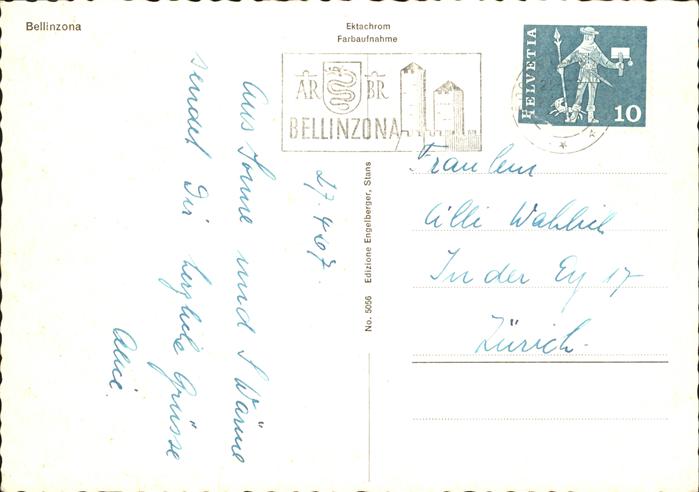 Bellinzona
Ektachrom
Farbaufnahme
AR BR
BELLINZONA
HELVETIA
10
27.4.67.
Aus Sonne und Wärme
sendet Dir herzliche Grüsse
Alice.
No. 5056 Edizione Engelberger, Stans
Fräulein
Cilli
In der Ey 17
Zürich.